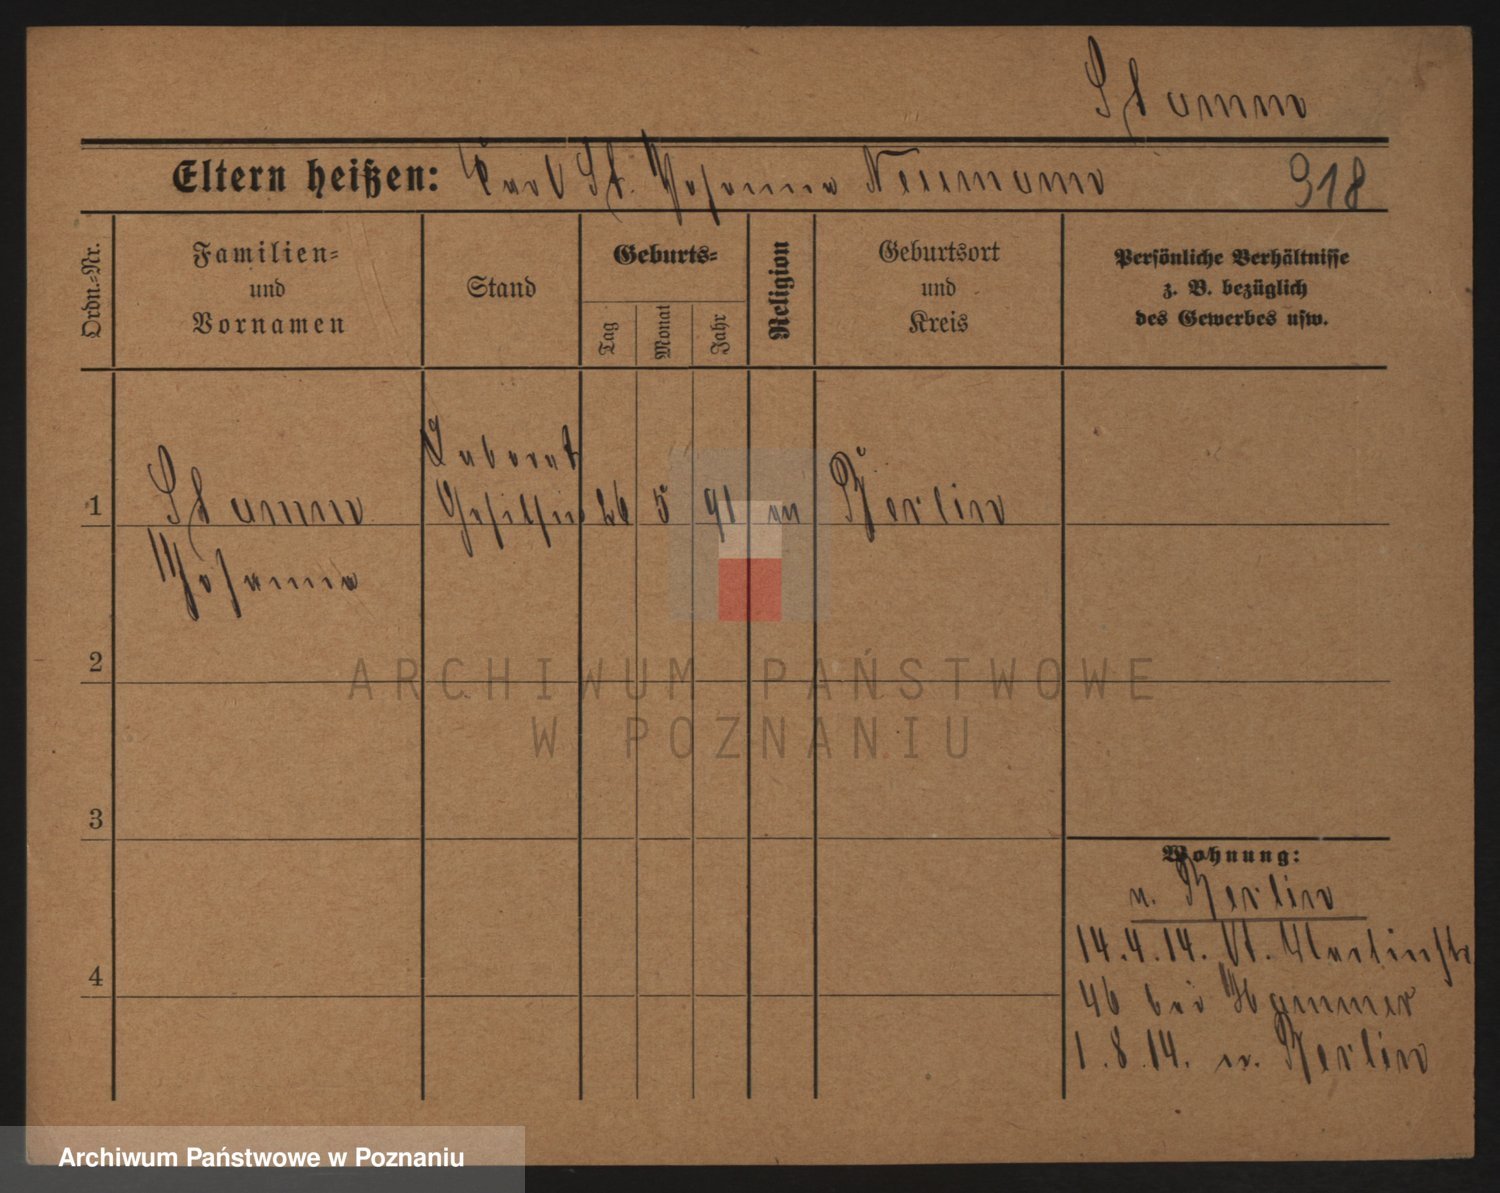 Stamm
Eltern heißen: Karl St. Johanna Neumann 318
Ordn.=Nr.
Familien=
und
Vornamen
Stand
Geburts=
Tag
Monat
Jahr
Religion
Geburtsort
und
Kreis
Persönliche Verhältnisse
z. B. bezüglich
des Gewerbes usw.
Laborat
1 Stamm Gehilfin 26 5 91 Berlin
Johanna
2
3
4
Wohnung:
v. Berlin
14.4.14. St. Martinstr
46 bei Hammer
1.8.14. n. Berlin
ARCHIWUM PAŃSTWOWE
W POZNANIU
Archiwum Państwowe w Poznaniu